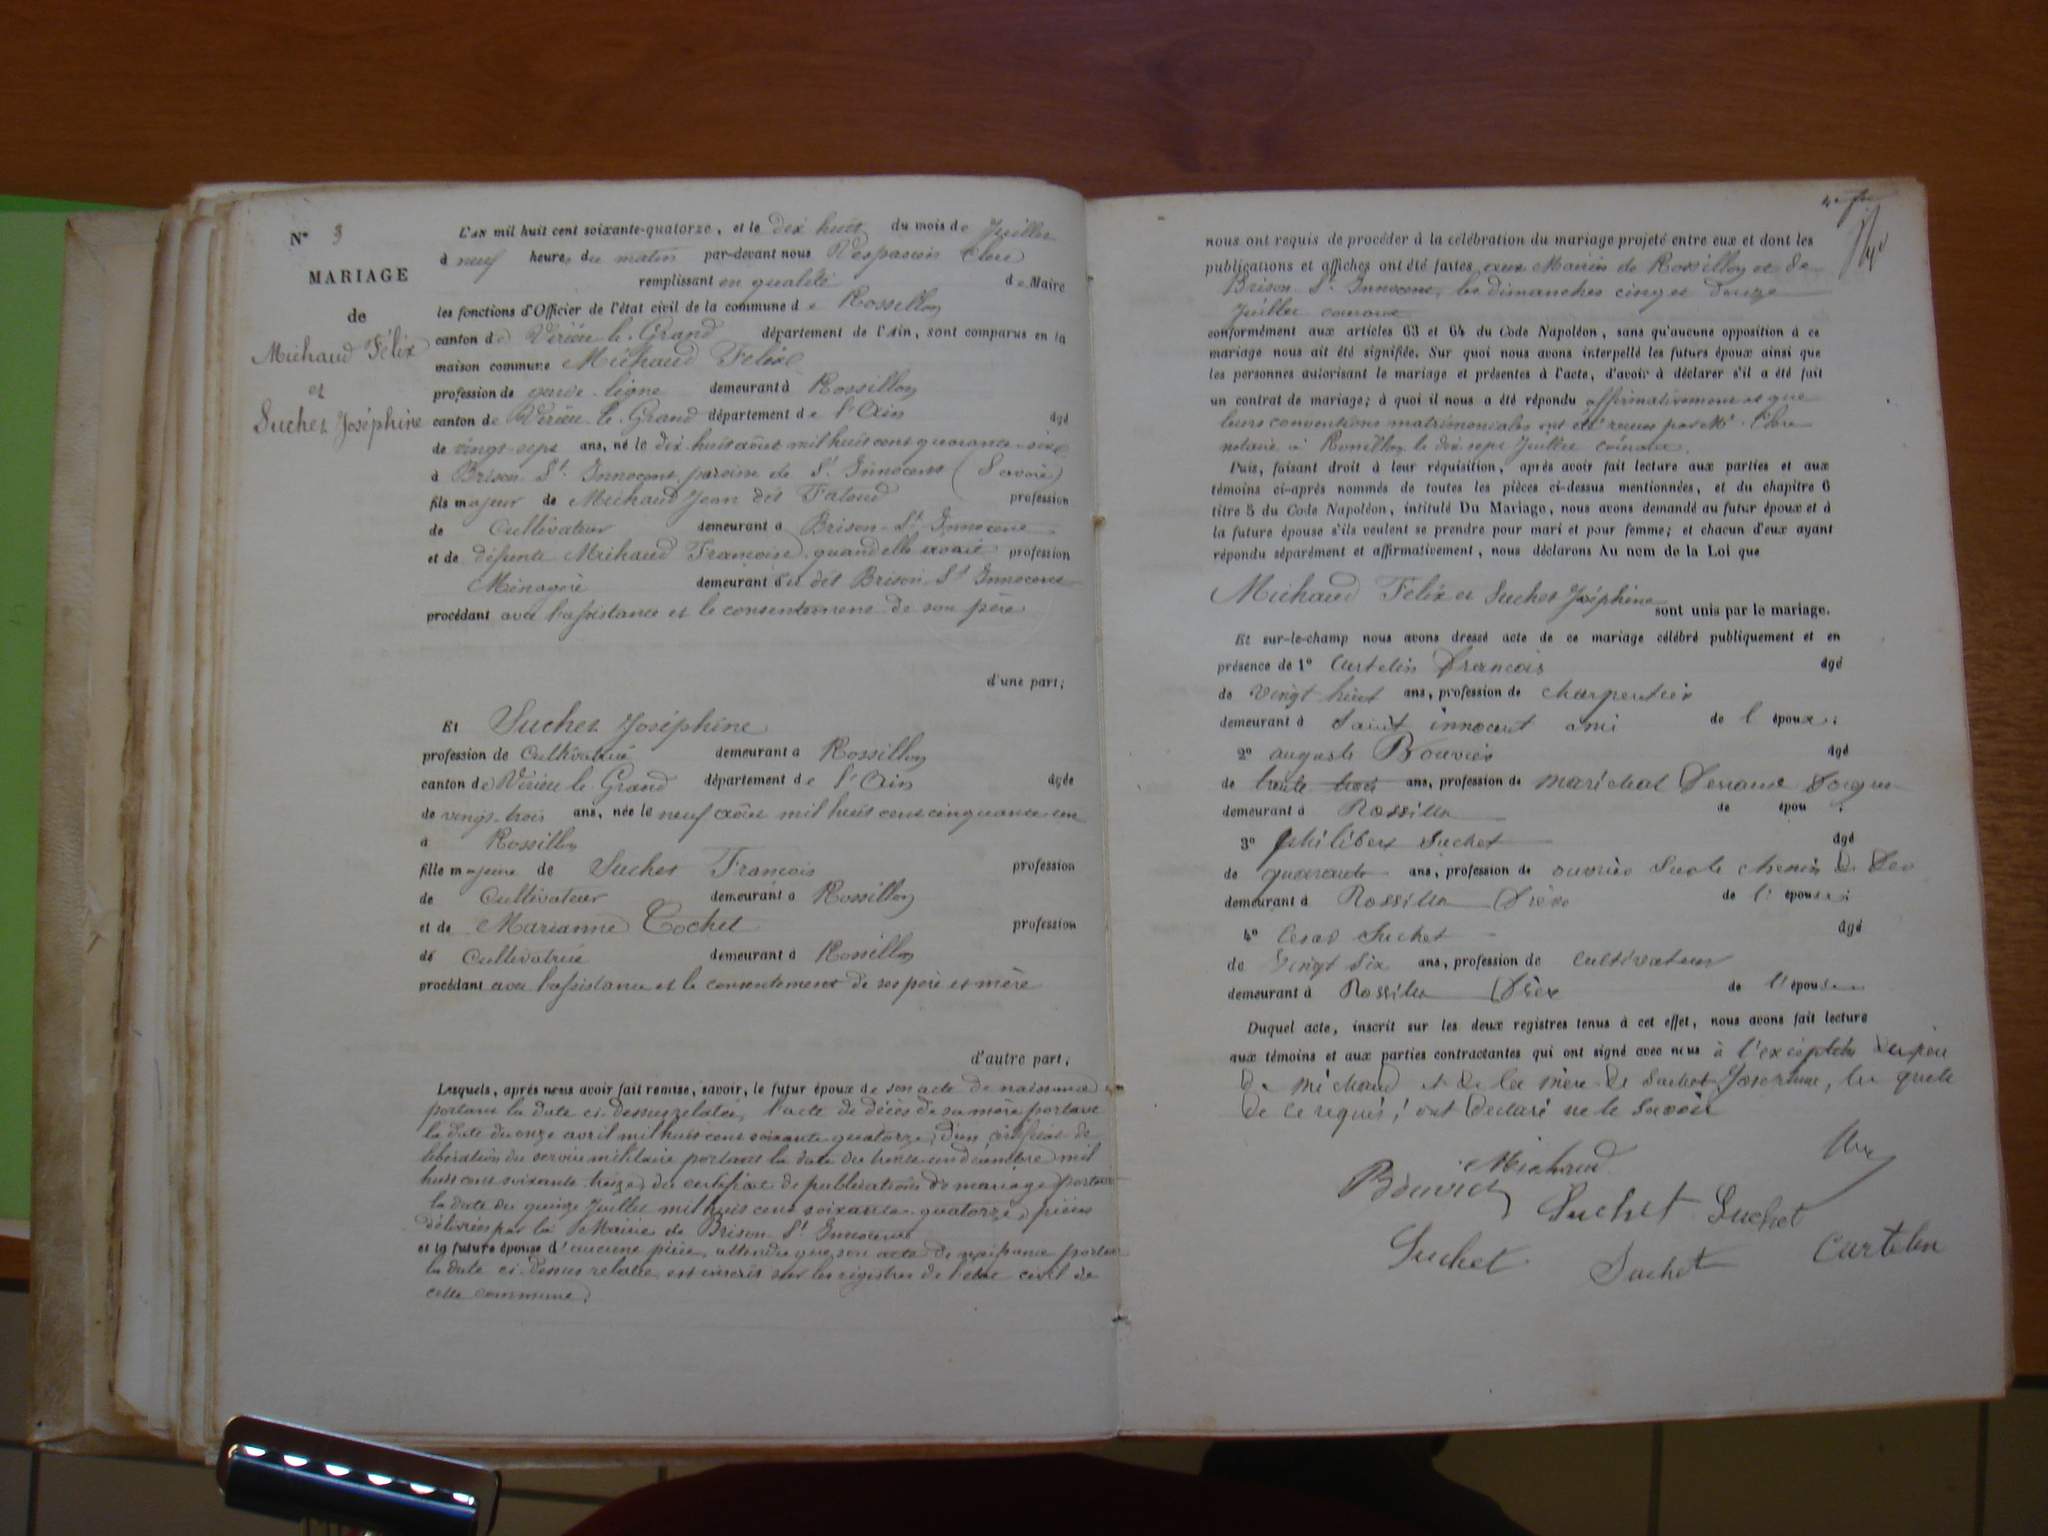 N° 3
MARIAGE
de
Michaud Félix
et
Suchet Joséphine
L'AN mil huit cent soixante-quatorze, et le dix huit du mois de Juillet
à neuf heures du matin par-devant nous Vespasien Clerc
remplissant en qualité de Maire
les fonctions d'Officier de l'état civil de la commune de Rossillon
canton de Virieu le Grand département de l'Ain, sont comparus en la
maison commune Michaud Félix
profession de garde-ligne demeurant à Rossillon
canton de Virieu le Grand département de l'Ain âgé
de vingt-sept ans, né le dix huit août mil huit cent quarante-six
à Brison St Innocent paroisse de St Innocent (Savoie)
fils majeur de Michaud Jean dit profession
de Cultivateur demeurant à Brison-St Innocent
et de défunte Michaud Françoise quand elle vivait profession
Ménagère demeurant au dit Brison-St Innocent
procédant avec l'assistance et le consentement de son père
d'une part;
Et Suchet Joséphine
profession de Cultivatrice demeurant à Rossillon
canton de Virieu le Grand département de l'Ain âgée
de vingt-trois ans, née le neuf août mil huit cent cinquante un
à Rossillon
fille majeure de Suchet François profession
de Cultivateur demeurant à Rossillon
et de Marianne Cochet profession
de Cultivatrice demeurant à Rossillon
procédant avec l'assistance et le consentement de ses père et mère
d'autre part;
Lesquels, après nous avoir fait remise, savoir, le futur époux de son acte de naissance
portant la date ci-dessus relatée, l'acte de décès de sa mère portant
la date du onze avril mil huit cent soixante quatorze, d'un certificat de
libération du service militaire portant la date du trente un décembre mil
huit cent soixante treize, du certificat de publications de mariage portant
la date du quinze Juillet mil huit cent soixante-quatorze, pièces
délivrées par la Mairie de Brison St Innocent
et la future épouse d'aucune pièce, attendu que son acte de naissance portant
la date ci-dessus relatée est inscrit sur les registres de l'état civil de
cette commune.
nous ont requis de procéder à la célébration du mariage projeté entre eux et dont les
publications et affiches ont été faites aux Mairies de Rossillon et de
Brison-St Innocent, les dimanches cinq et douze
Juillet courant
conformément aux articles 63 et 64 du Code Napoléon, sans qu'aucune opposition à ce
mariage nous ait été signifiée. Sur quoi nous avons interpellé les futurs époux ainsi que
les personnes autorisant le mariage et présentes à l'acte, d'avoir à déclarer s'il a été fait
un contrat de mariage; à quoi il nous a été répondu affirmativement et que
leurs conventions matrimoniales ont été reçues par Me
notaire à Rossillon le dix sept Juillet courant.
Puis, faisant droit à leur réquisition, après avoir fait lecture aux parties et aux
témoins ci-après nommés de toutes les pièces ci-dessus mentionnées, et du chapitre 6
titre 5 du Code Napoléon, intitulé Du Mariage, nous avons demandé au futur époux et à
la future épouse s'ils veulent se prendre pour mari et pour femme; et chacun d'eux ayant
répondu séparément et affirmativement, nous déclarons Au nom de la Loi que
Michaud Félix et Suchet Joséphine sont unis par le mariage.
Et sur-le-champ nous avons dressé acte de ce mariage célébré publiquement et en
présence de 1° Curtelin Francois âgé
de vingt huit ans, profession de charpentier
demeurant à Saint innocent ami de l'époux;
2° auguste Bouvier âgé
de trente trois ans, profession de marechal
demeurant à Rossillon de épou ;
3° philibert Suchet âgé
de quarante ans, profession de ouvrier sur le chemin de fer
demeurant à Rossillon frère de l'épouse;
4° Cesar Suchet âgé
de vingt six ans, profession de cultivateur
demeurant à Rossillon frère de l'épouse
Duquel acte, inscrit sur les deux registres tenus à cet effet, nous avons fait lecture
aux témoins et aux parties contractantes qui ont signé avec nous à l'exception du père
de michaud et de la mère de Suchet Josephine, les quels
de ce requis, ont declaré ne le savoir
Michaud
Bouvier
Suchet Suchet
Suchet Suchet Curtelin